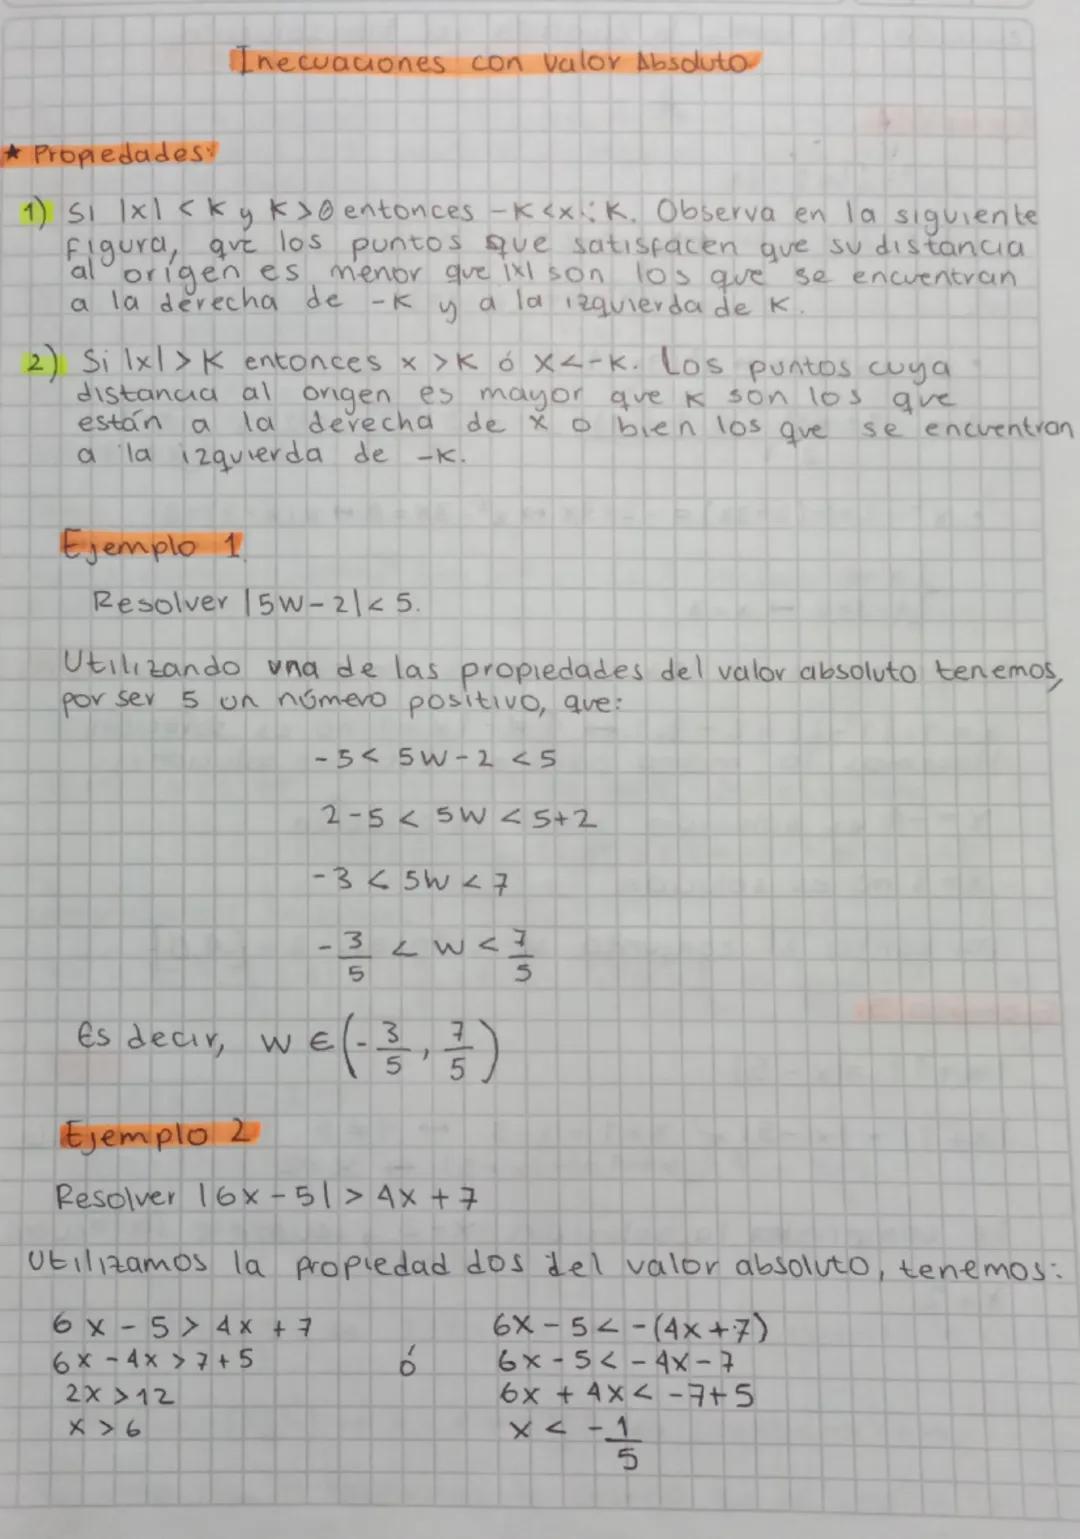 Inecuaciones con Valor Absoluto
★ Propiedades:
1) Si |x| < K y K > 0 entonces -K < x < K. Observa en la siguiente
Figura, que los puntos que satisfacen que su distancia
al origen es menor que |x| son los que se encuentran
a la derecha de -K y a la izquierda de K.
2) Si |x| > K entonces x > K ó x < -K. Los puntos cuya
distancia al origen es mayor que K son los que
están a la derecha de x o bien los que se encuentran
a la izquierda de -K.
Ejemplo 1
Resolver |5W - 2| < 5.
Utilizando una de las propiedades del valor absoluto tenemos,
por ser 5 un número positivo, que:
-5 < 5W - 2 < 5
2 - 5 < 5W < 5 + 2
-3 < 5W < 7
-3/5 < W < 7/5
Es decir, W ∈ (-3/5, 7/5)
Ejemplo 2
Resolver |6x - 5| > 4x + 7
Utilizamos la propiedad dos del valor absoluto, tenemos:
6x - 5 > 4x + 7 6x - 5 < -(4x + 7)
6x - 4x > 7 + 5 ó 6x - 5 < -4x - 7
2x > 12 6x + 4x < -7 + 5
x > 6 x < -1/5